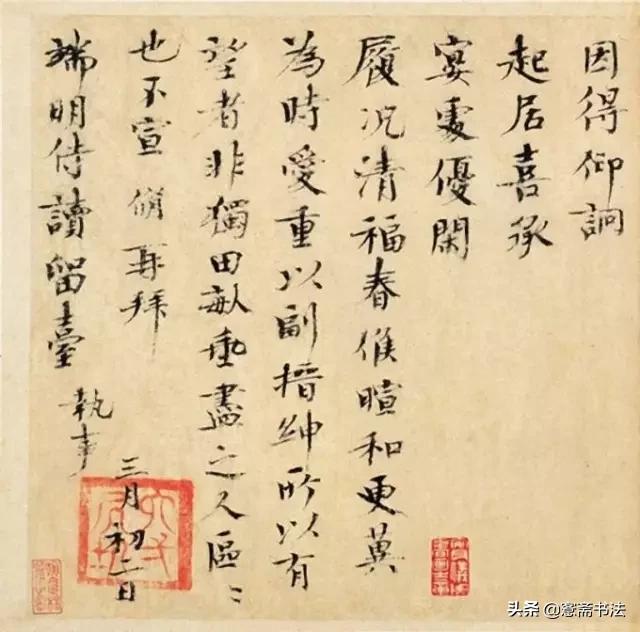 因得仰詢
起居喜承
宴處優閑
履況清福春候暄和更冀
為時愛重以副搢紳所以有
望者非獨田畝垂盡之人區〻
也不宣 脩再拜
端明侍讀留臺 執事
三月初二日
头条 @斋书法